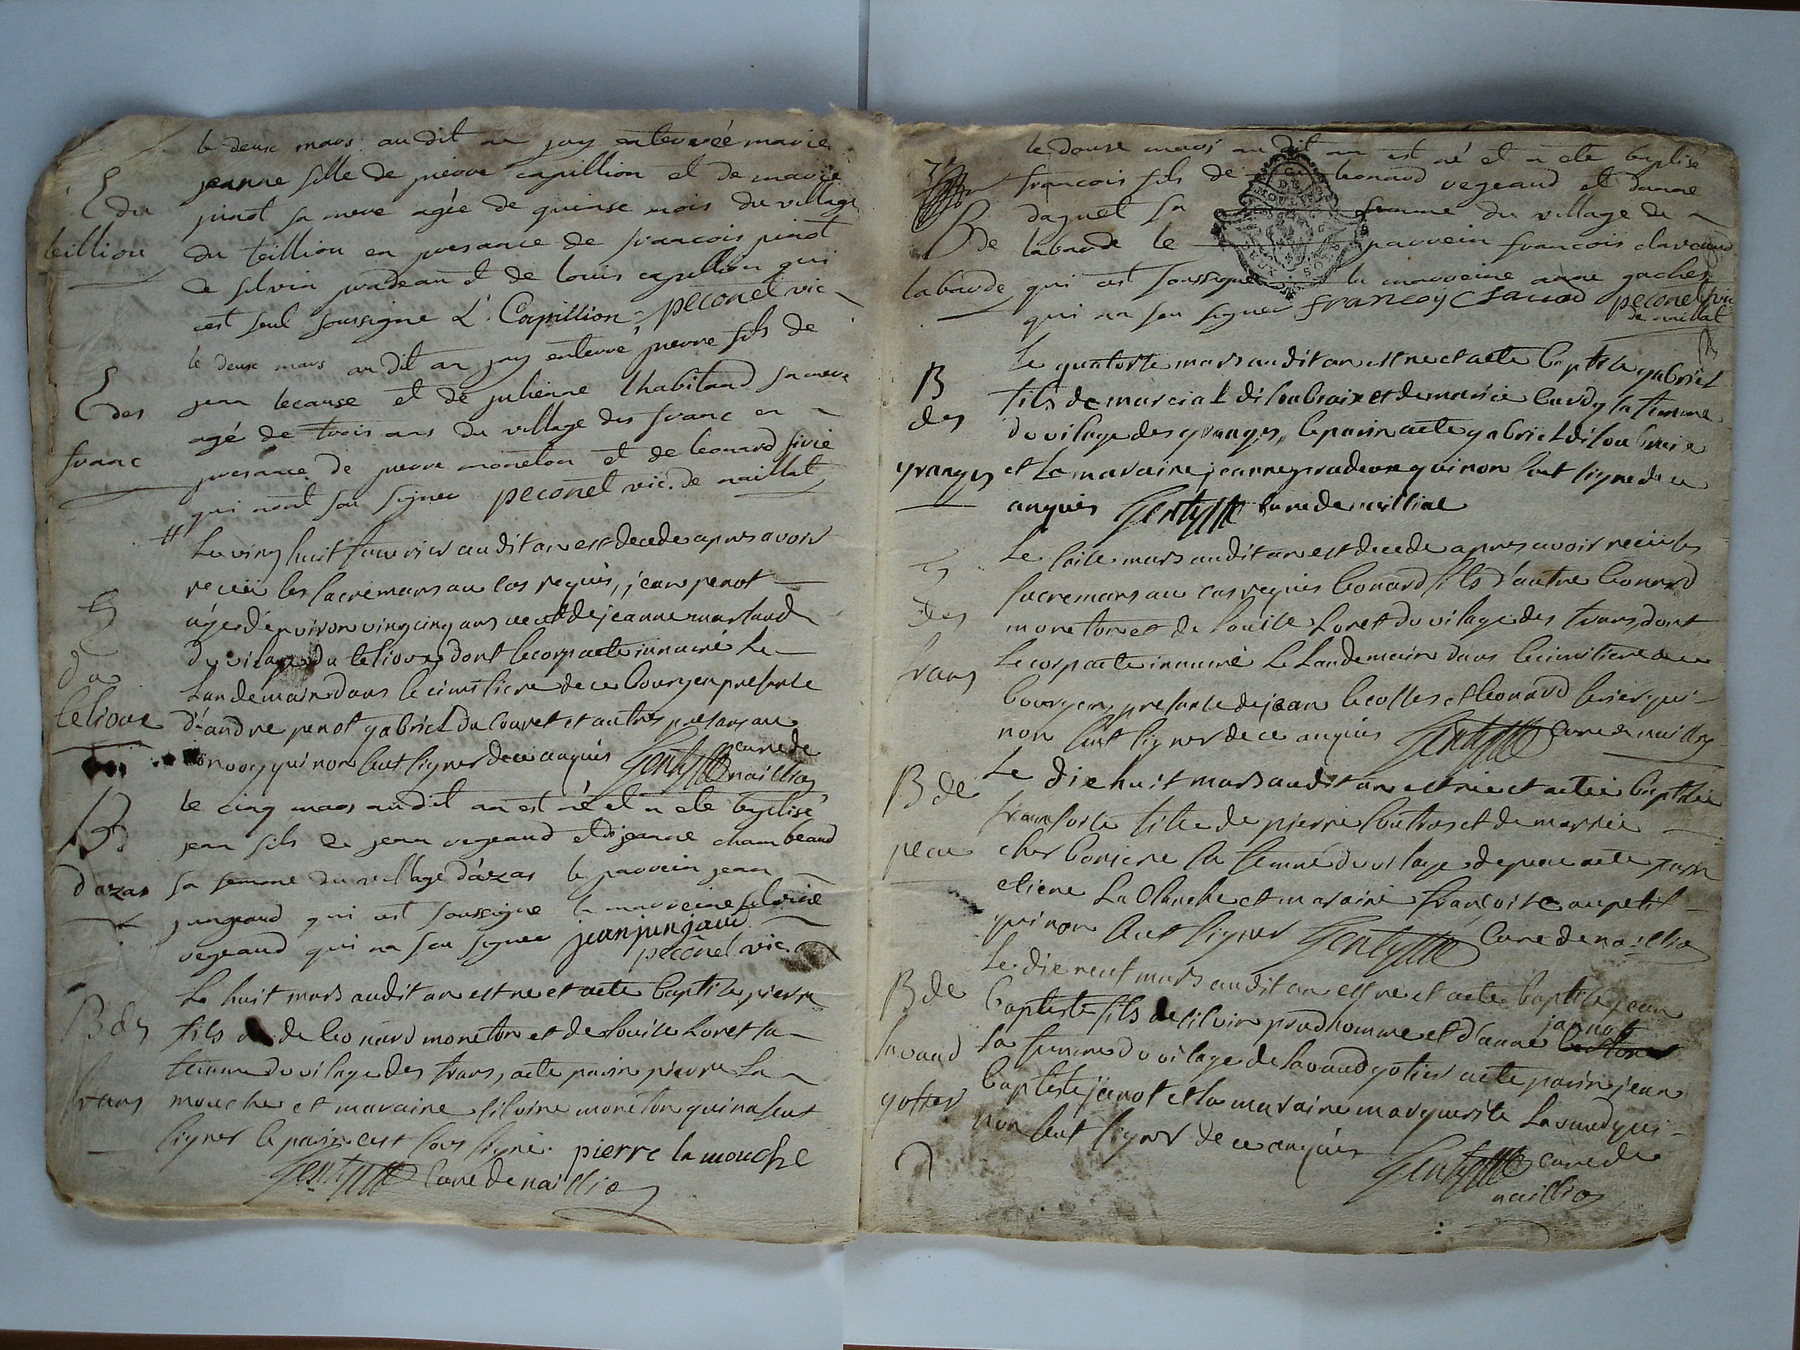 le deuse mars audit an jay enterrée marie
E du
teillion
jeanne fille de pierre capillion et de marie
pinot sa mere agée de quinse mois du village
du teillion en presance de francois pinot
de silvin pradeau et de louis capillion qui
est seul soussigne L. Capillion, peconet vic
le deuse mars audit an jay enterré pierre fils de
E des
franc
jean lecause et de julienne lhabitand sa mere
agé de trois ans du village des franc en
presance de pierre moneton et de leonard
qui nont su signer peconet vic. de naillat
Le ving huit audit an est decede apres avoir
E
du
teliout
receu les sacremans au cas requis, jean penot
agé denviron ving cinq ans de jeanne
du vilage du dont le corp acte innumé le
landemain dans le cimitiere de ce bourg en presance
d'andre penot gabriel du couret et autres presans au
convoy qui non seut signer de ce anquis Genty cure de
naillia
le cinq mars audit an est né et a ete baptisé
B
d'azas
jean fils de jean vergeaud et de jeanne chambeaud
sa femme du village d'azas le parrein jean
junjaud qui est soussigne la marreine silvine
vergeaud qui na seu signer jean junjaud
peconet vic.
Le huit mars audit an est ne et acte baptise pierre
B des
frans
fils de leonard moneton et de louise loret sa
femme du vilage des frans, acte parin pierre la
mouche et maraine silvine moneton qui na seut
signer le parin cest sous signe. pierre la mouche
Genty cure de naillia
le douse mars audit an est né et a ete baptise
B de
labaude
francois fils de leonard vegeaud et danne
daguet sa femme du village de
labaude le parrein francois claveaud
qui est soussigne la marreine anne gaches
qui na seu signer francoy Clauaud peconet vic
de naillat
Le quatorse mars audit an est ne et acte baptise gabriel
B
des
granges
fils de marcial diloubraix et de marie la femme
du vilage des granges, le parin acte gabriel
et la maraine jeanne pradeau qui non seut signe de ce
anquis Genty cure de naillia
Le saise mars audit an est decede apres avoir receu les
des
frans
sacremans au cas requis leonard fils d'autre leonard
moneton et de louise loret du vilage des frans, dont
le corp acte innumé le landemain dans le cimitiere de ce
bourg en presance de jean et leonard qui
non seut signer de ce anquis Genty cure de naillia
Le die huit mars audit an est nee et actée baptisée
B de
peau
fransoise fille de pierre et de marie
la femme du vilage de peau acte parin
etiene et maraine françoise aupetit
qui non seut signer Genty Cure de naillia
Le die neuf mars audit an est ne et acte baptise jean
B de
lavaud
gotier
baptiste fils de silvin prudhomme et d'anne janot
la femme du vilage de lavaud gotier acte parin jean
baptiste janot et la maraine marguerite lavaud qui
non seut signer de ce anquis Genty cure de
naillia